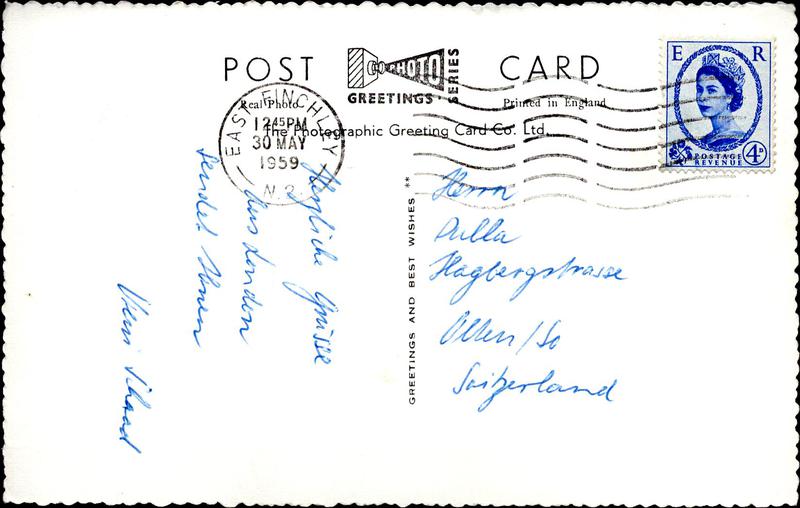 POST CARD
GoPHOTO
GREETINGS SERIES
Real Photo
Printed in England
The Photographic Greeting Card Co. Ltd.
EAST FINCHLEY
12 45 PM
30 MAY
1959
N.2.
E R
POSTAGE
REVENUE
4D
Herzliche Grüsse
aus London
sendet Ihnen
GREETINGS AND BEST WISHES **
Herrn
Hagbergstrasse
Olten/So
Switzerland